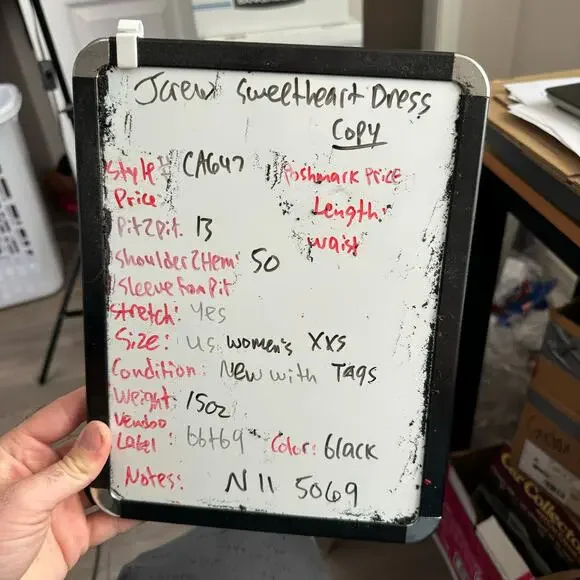 Jcrew Sweetheart Dress
Copy
Style# CA647
Poshmark Price
Price
Length:
Pit2Pit 13
Waist
Shoulder2Hem: 50
Sleeve From Pit
Stretch: Yes
Size: US women's XXS
Condition: New with Tags
Weight: 15oz
Vendoo
Label: 66769 Color: black
Notes: N11 5069